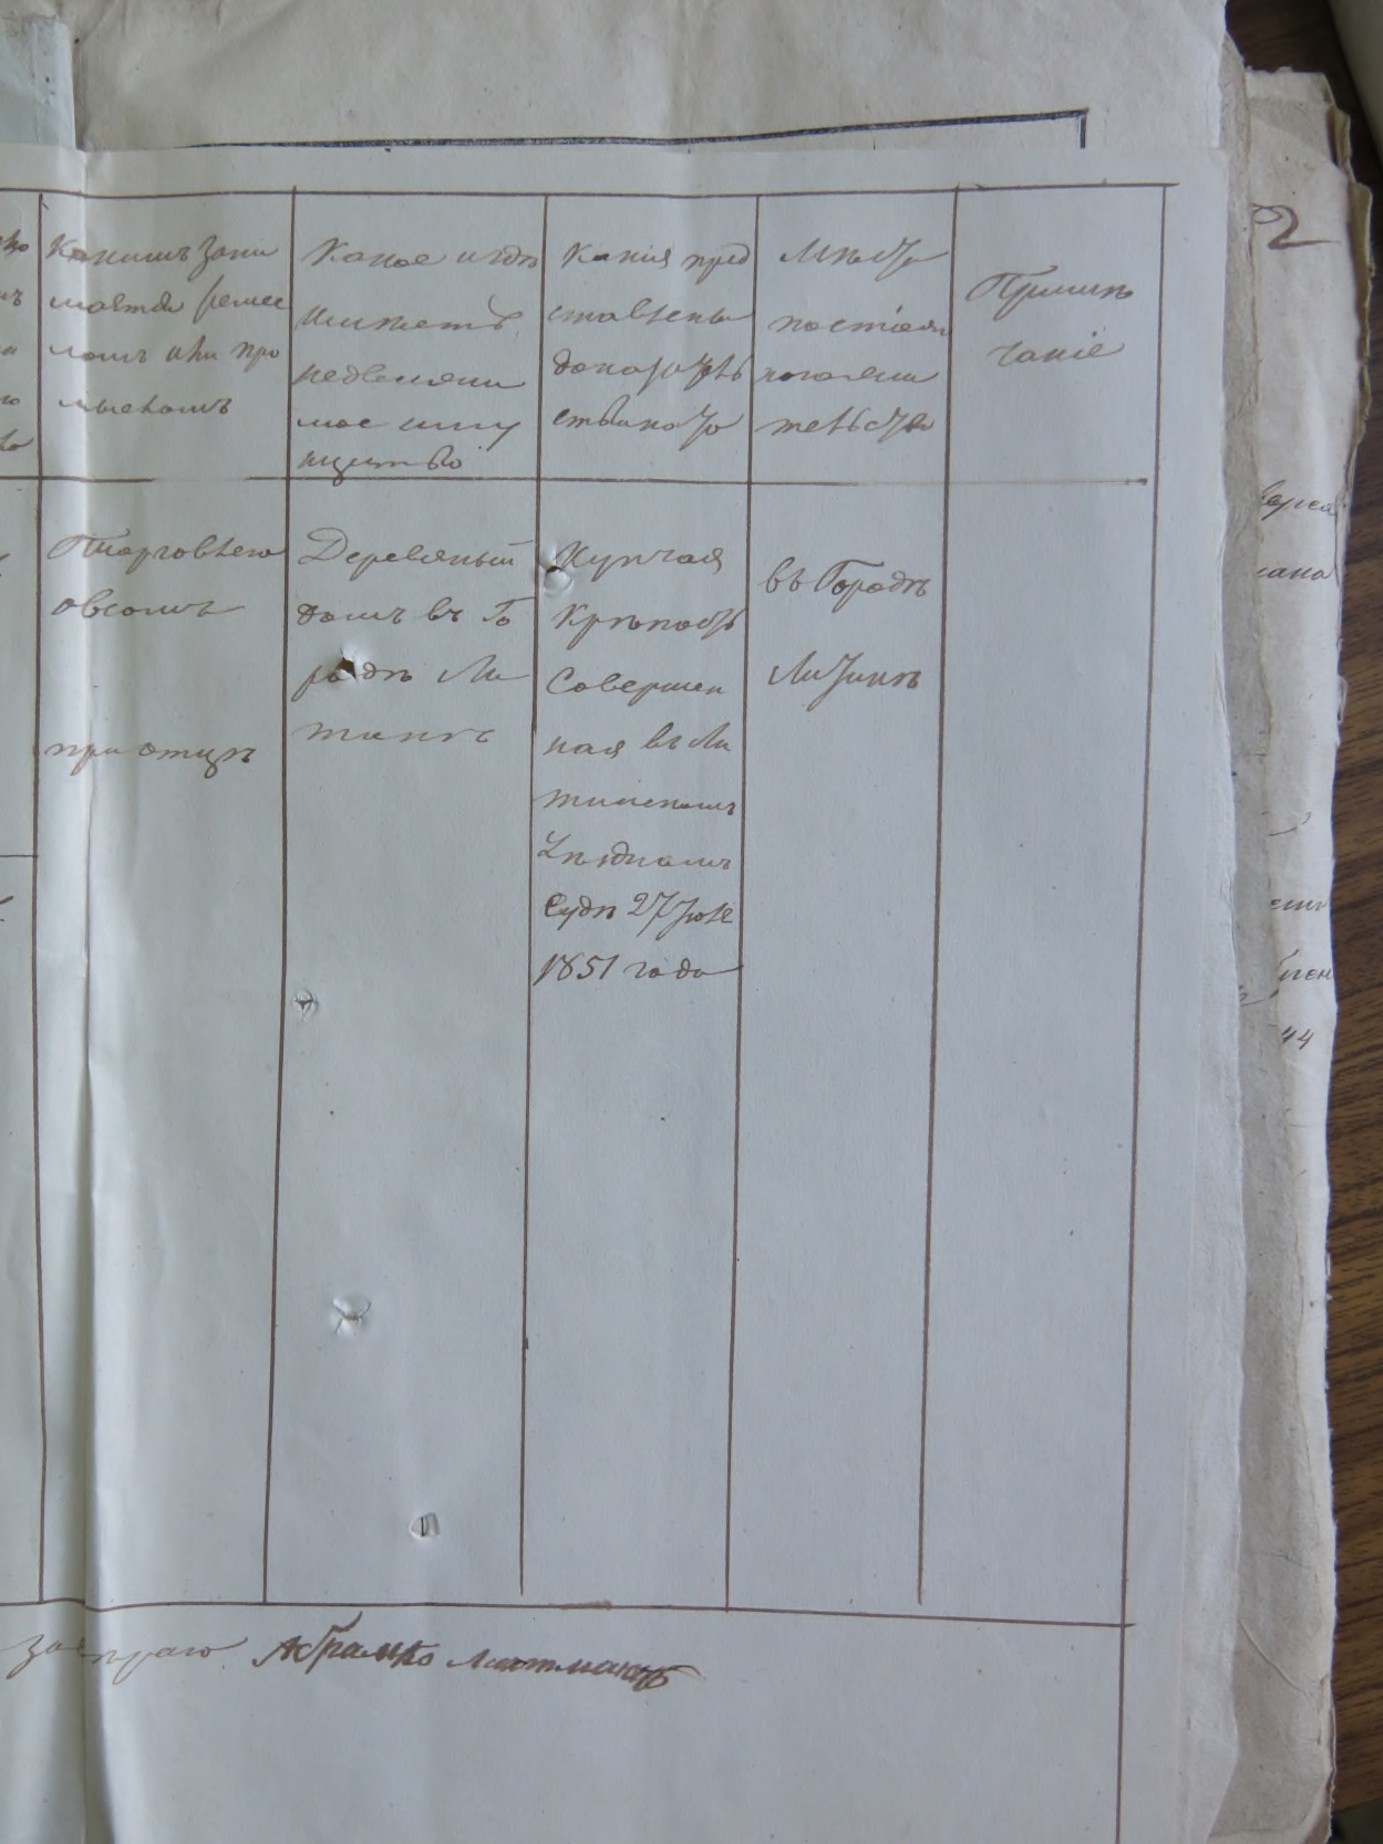 Какимъ зани
мается ремес
ломъ или про
мысломъ
Какое и гдѣ
имѣетъ
недвижи
мое иму
щество
Какія пред
ставлены
доказатель
ства на то
Мѣсто
постоян
наго жи
тельства
Примѣ
чаніе
Торговлею
овсомъ
при отцѣ
Деревяный
домъ въ Го
родѣ Ли
тинѣ
Купчая
Крѣпость
Совершен
ная въ Ли
тинскомъ
Уѣздномъ
Судѣ 27 Юля
1851 года
въ Городѣ
Литинѣ
Абрамко
2
44